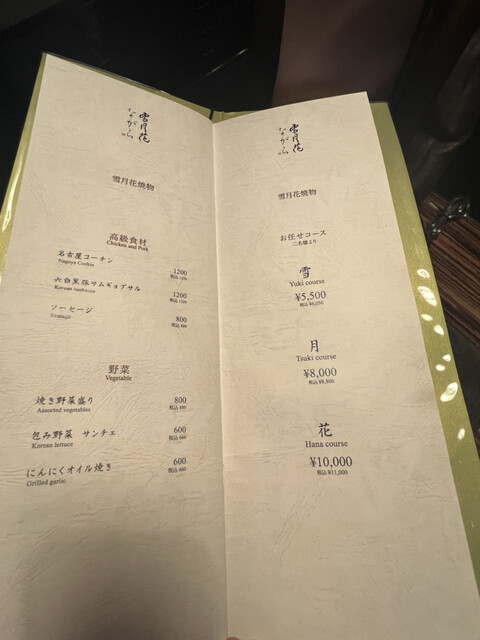 雪月花
ながら山
雪月花焼物
高級食材
Chicken and Pork
名古屋コーチン
Nagoya Cochin
1200
税込 1320
六白黒豚サムギョプサル
Korean barbecue
1200
税込 1320
ソーセージ
800
税込 880
野菜
Vegetable
焼き野菜盛り
Assorted vegetables
800
税込 880
包み野菜 サンチェ
Korean lettuce
600
税込 660
にんにくオイル焼き
Grilled garlic
600
税込 660
雪月花
ながら山
雪月花焼物
お任せコース
二名様より
雪
Yuki course
¥5,500
税込 ¥6,050
月
Tsuki course
¥8,000
税込 ¥8,800
花
Hana course
¥10,000
税込 ¥11,000